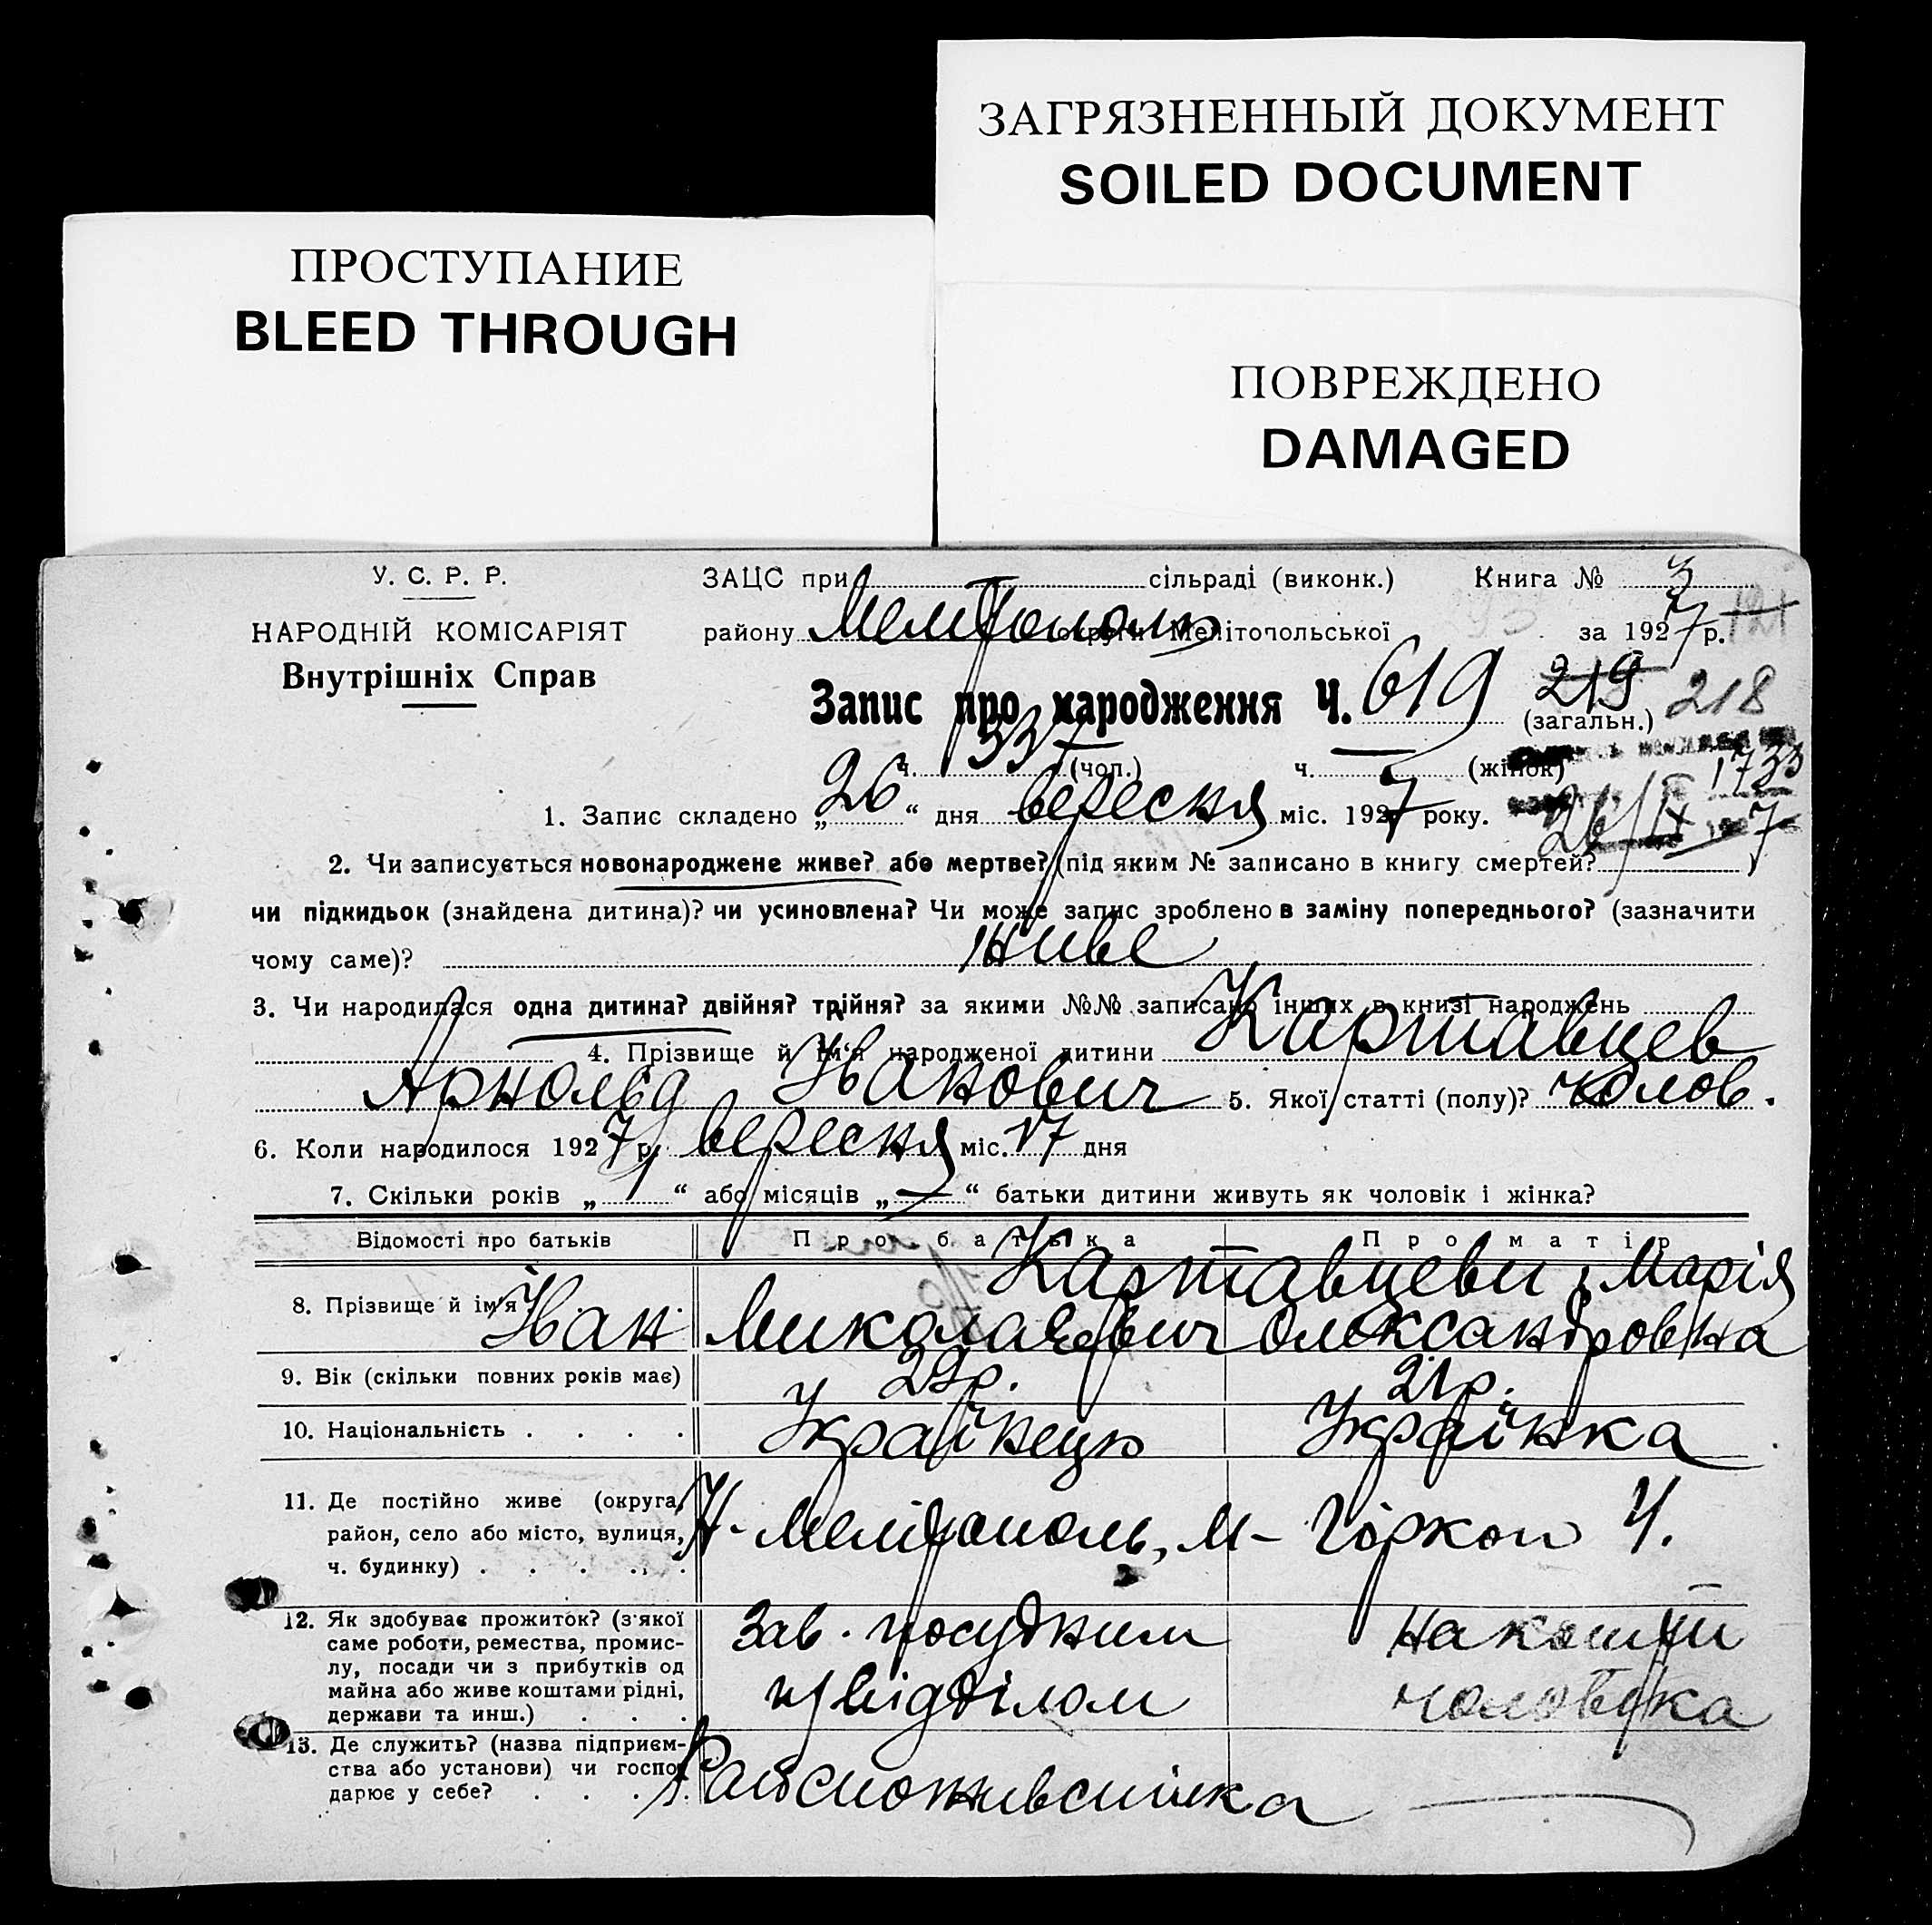 ЗАГРЯЗНЕННЫЙ ДОКУМЕНТ
SOILED DOCUMENT
ПРОСТУПАНИЕ
BLEED THROUGH
ПОВРЕЖДЕНО
DAMAGED
У. С. Р. Р.
НАРОДНІЙ КОМІСАРІЯТ
Внутрішніх Справ
ЗАЦС при сільраді (виконк.) Книга № 3
району Мелітополь округи Мелітопольської за 1927 р. 121
Запис про народження Ч. 619 219 (загальн.) 218
ч. 337 (чол.) ч. — (жінок) 1733
1. Запис складено „26“ дня вересня міс. 1927 року. 26/IX 7
2. Чи записується новонароджене живе? або мертве? (під яким № записано в книгу смертей? )
чи підкидьок (знайдена дитина)? чи усиновлена? Чи може запис зроблено в заміну попереднього? (зазначити
чому саме)? живе
3. Чи народилася одна дитина? двійня? трійня? за якими №№ записано інших в книзі народжень
4. Прізвище й ім'я народженої дитини Картавцев
Арнольд Іванович 5. Якої статті (полу)? чолов.
6. Коли народилося 1927 р. вересня міс. 17 дня
7. Скільки років „1“ або місяців „—“ батьки дитини живуть як чоловік і жінка?
Відомості про батьків Про батька Про матір
8. Прізвище й ім'я Картавцеви, Марія
Іван Миколаєвич Олександровна
9. Вік (скільки повних років має) 29р. 21р.
10. Національність . . . . Українець Українка
11. Де постійно живе (округа,
район, село або місто, вулиця,
ч. будинку) . . . . . Н-Мелітополь, М-Горкого 4.
12. Як здобуває прожиток? (з якої
саме роботи, ремества, промис-
лу, посади чи з прибутків од
майна або живе коштами рідні,
держави та инш.) . . . Зав. посудним
підвідділом на кошти
чоловіка
13. Де служить? (назва підприєм-
ства або установи) чи госпо-
дарює у себе? . . . . Райспоживспілка —